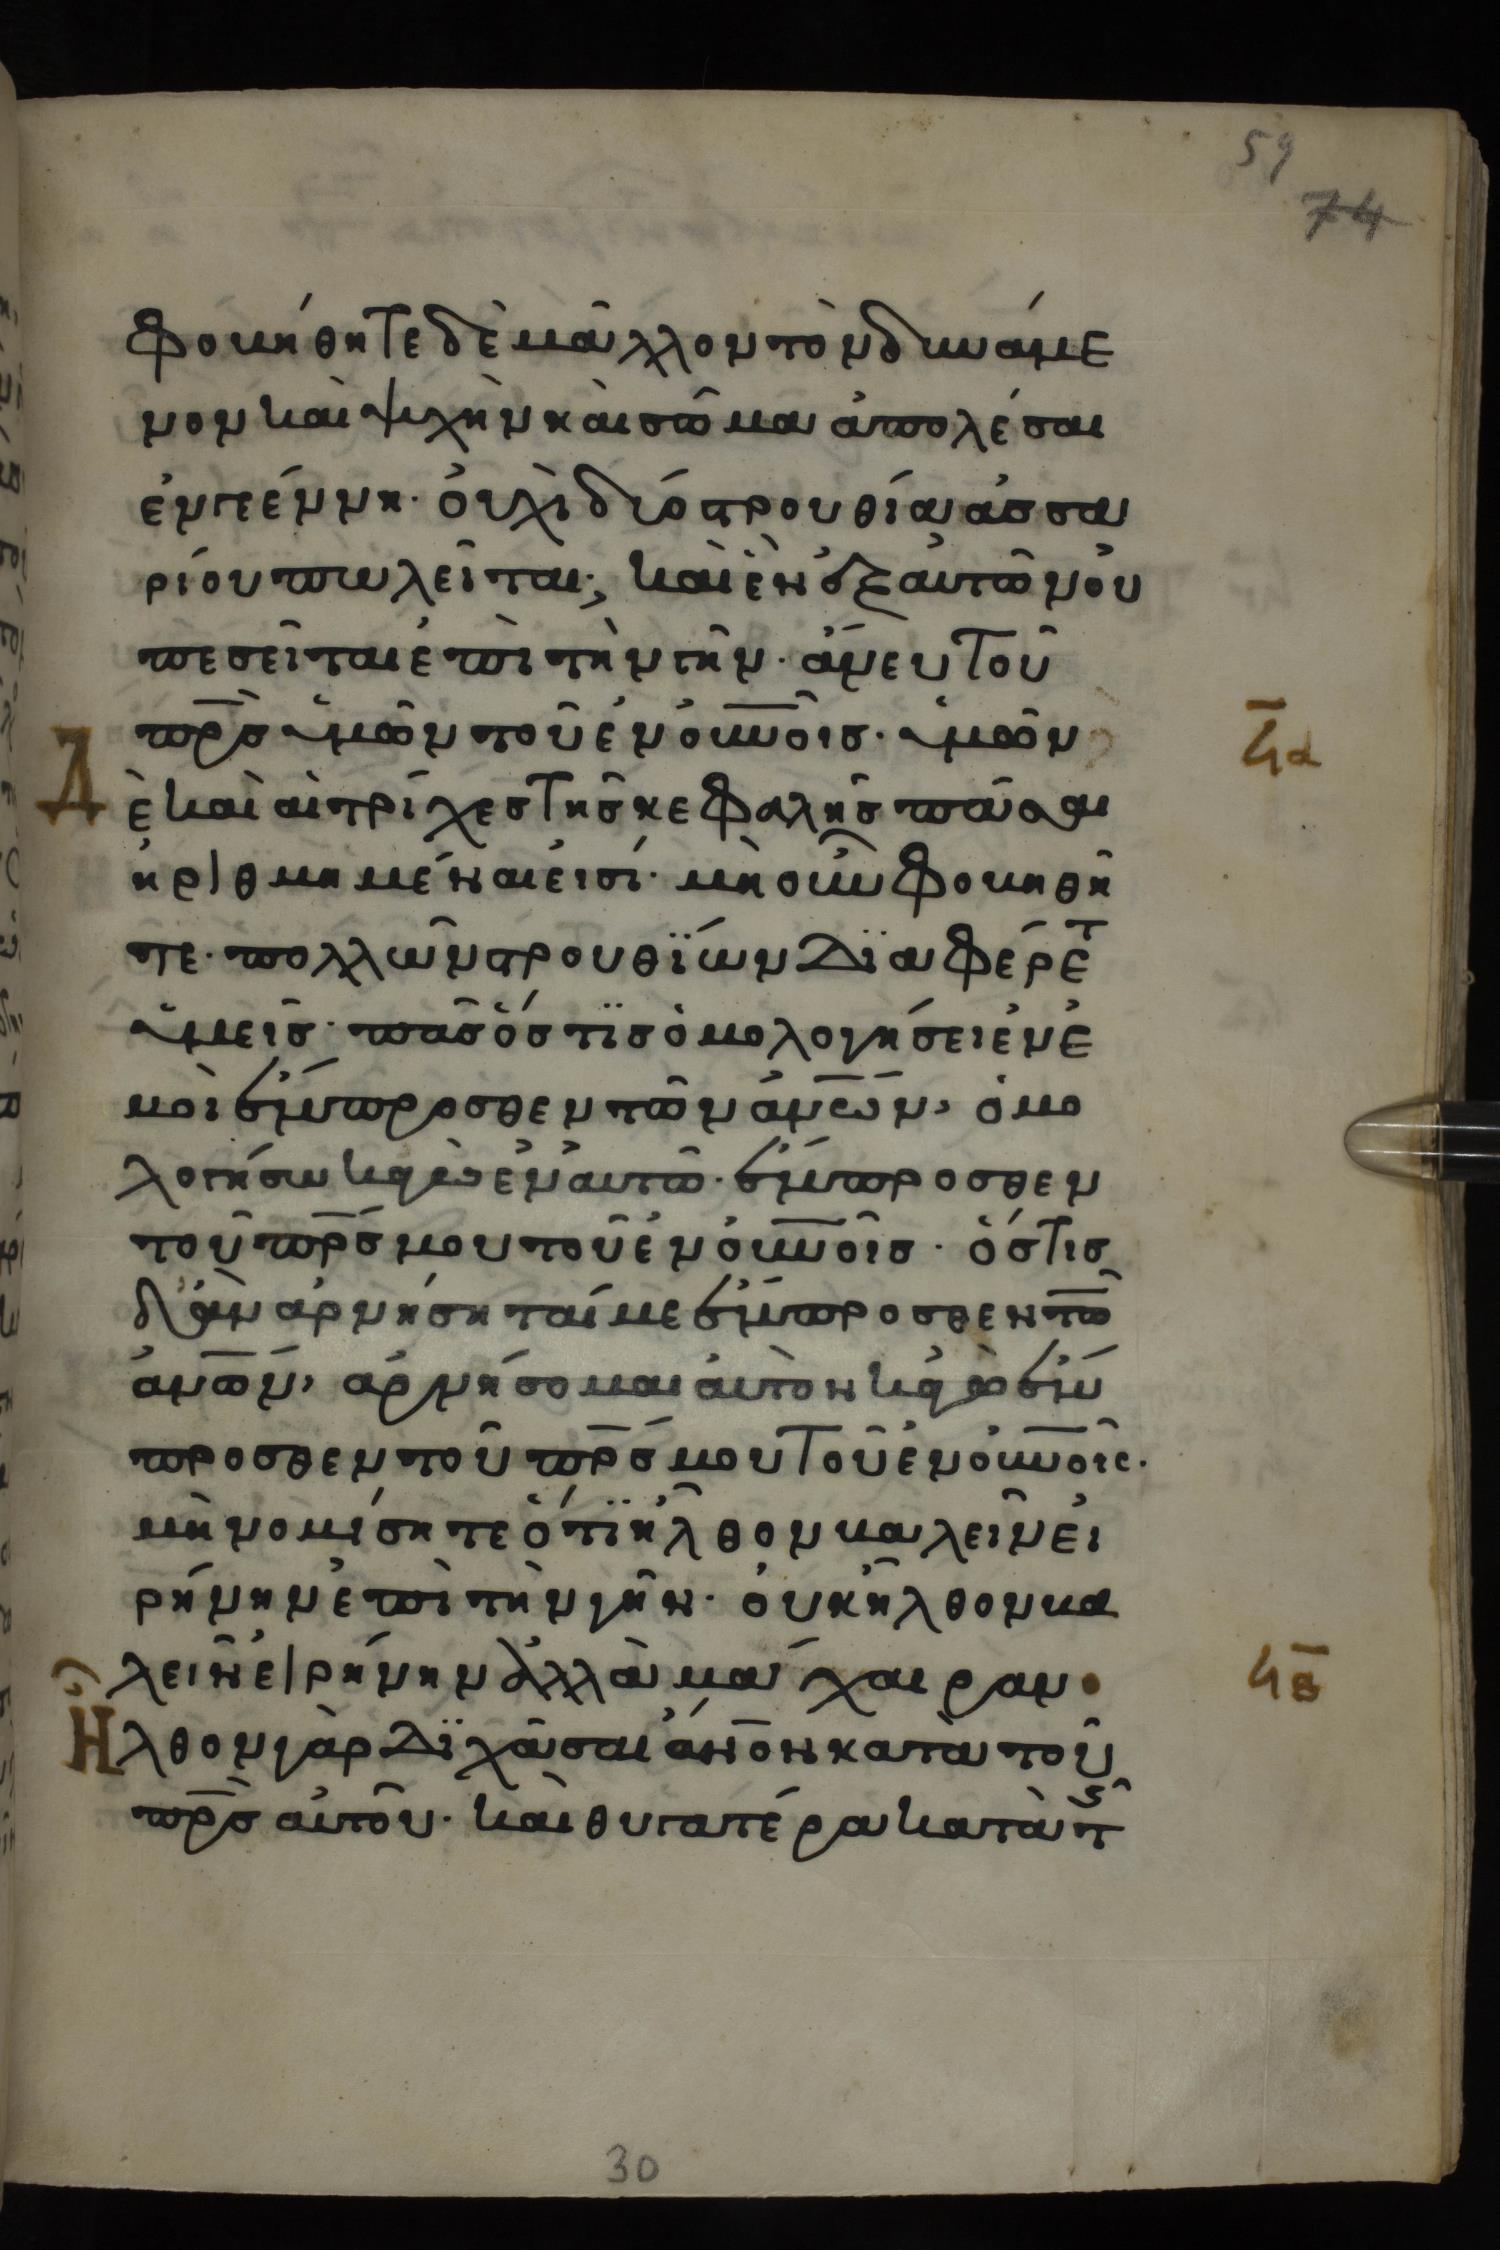 59
74
φοβήθητε δὲ μᾶλλον τὸν δυνάμε
νον καὶ ψυχὴν καὶ σῶμα ἀπολέσαι
ἐν γεέννη· ὀυχὶ δύο στρουθία ἀσσα
ρίου πωλεῖται; καὶ ἓν ἐξ αυτῶν ὀυ
πεσεῖται ἐπὶ τὴν γῆν· ἄνευ τοῦ
π̅ρ̅ς ὑμῶν τοῦ ἐν ὀυ̅ν̅οῖς· ὑμῶν
δ
ϟ̅α
ὲ καὶ αἱ τρίχες τῆς κεφαλῆς πᾶσαι
ἠριθμημέναι εἰσί· μὴ οὖν φοβηθῆ
τε· πολλῶν στρουθϊων δϊαφέρετ
ὑμεῖς· πᾶς ὅστϊς ὁμολογήσει ἐν ἐ
μοὶ ἔμπροσθεν τῶν ἀν̅ω̅ν, ὁμο
λογήσω κἀγὼ ἐν ἀυτῶ· ἔμπροσθεν
τοῦ π̅ρ̅ς μου τοῦ ἐν ὀυ̅ν̅οῖς· ὅστις
δ' ἂν ἀρνήσηταί με ἔμπροσθεν τῶ
ἀν̅ω̅ν, ἀρνήσομαι ἀυτὸν κἀγὼ ἔμ
προσθεν τοῦ π̅ρ̅ς μου τοῦ ἐν ὀυ̅ν̅οῖς·
μὴ νομίσητε ὅτϊ ἦλθον βαλεῖν εἰ
ρήνην ἐπὶ τὴν γῆν· ὀυκ ἦλθον βα
λεῖν εἰρήνην ἀλλὰ μάχαιραν·
ϟ̅β
Ἦλθον γὰρ δϊχᾶσαι ἄν̅ο̅ν κατα τοῦ
π̅ρ̅ς ἀυτοῦ· καὶ θυγατέρα κατὰ τῆς
30